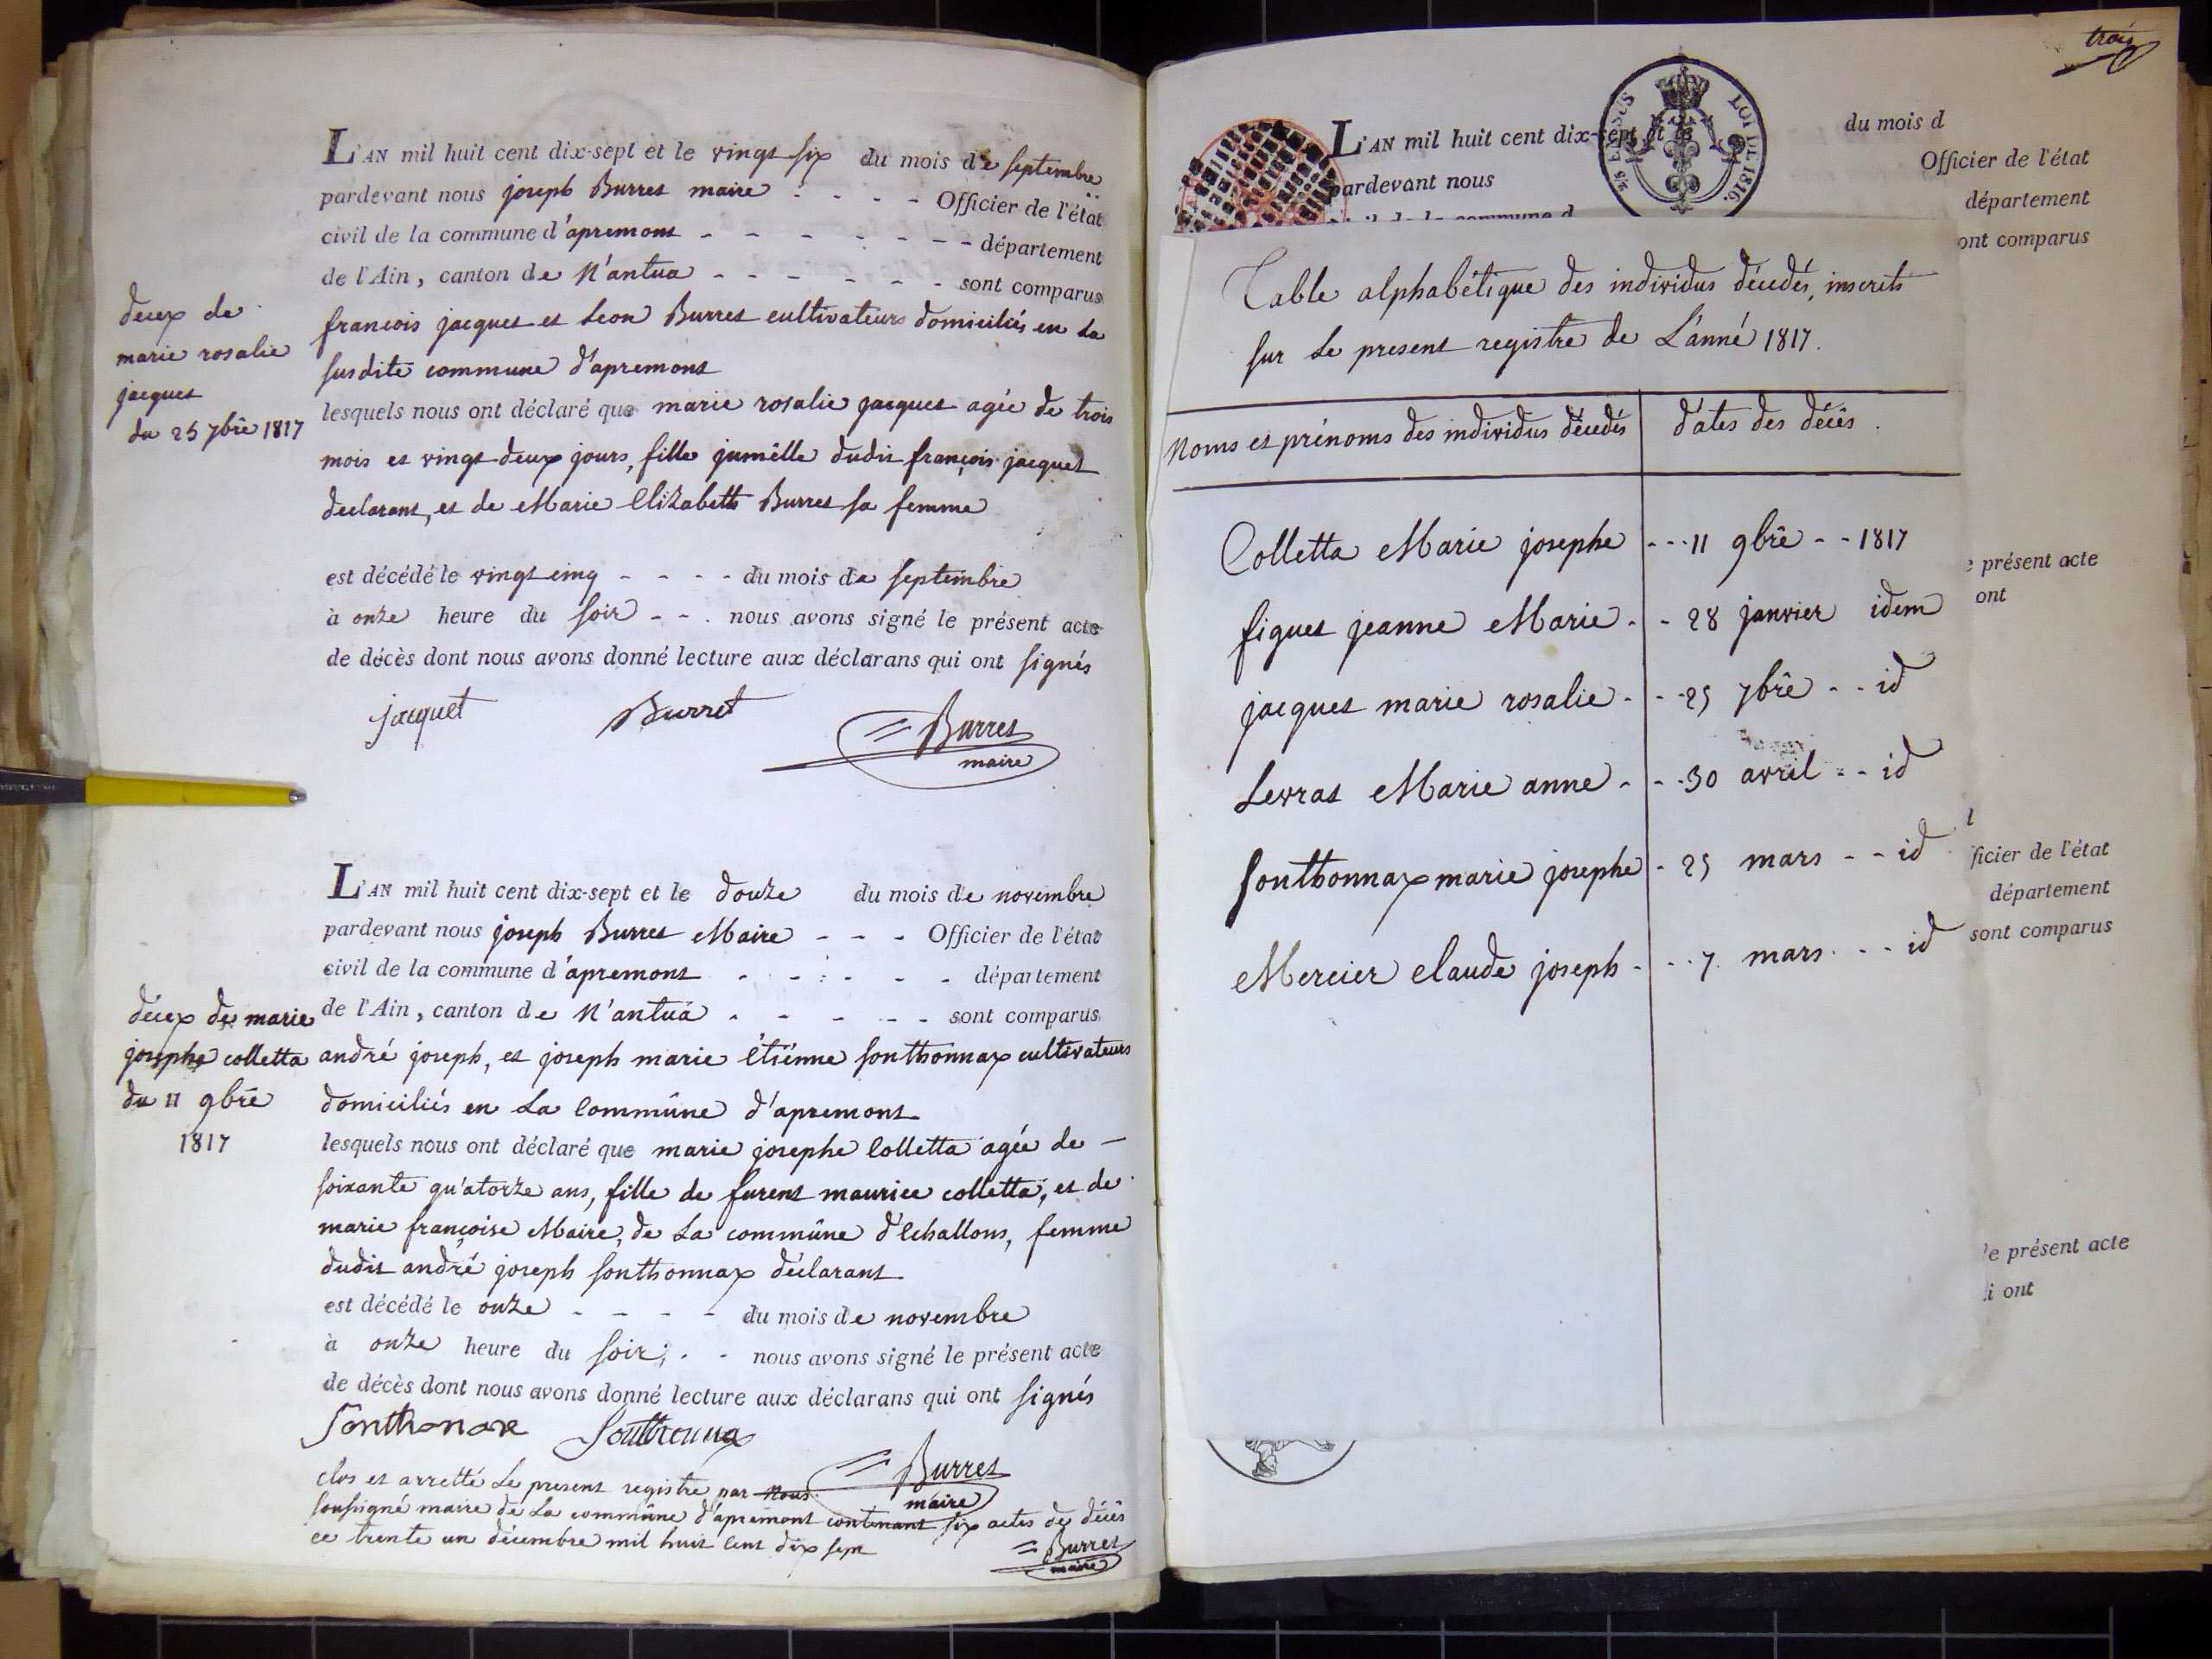 L'AN mil huit cent dix-sept et le vingt six du mois de septembre
pardevant nous joseph Burret maire - - - - Officier de l'état
civil de la commune d'apremont - - - - - - - - département
de l'Ain, canton de N'antua - - - - - - sont comparus
francois jacquet et Leon Burret cultivateurs domiciliés en La
susdite commune d'apremont
lesquels nous ont déclaré que marie rosalie jacquet agée de trois
mois et vingt deux jours, fille jumélle dudit françois jacquet
declarant, et de Marie Elizabeth Burret sa femme
est décédé le vingt cinq - - - - du mois de septembre
à onze heure du soir - - . nous avons signé le présent acte
de décès dont nous avons donné lecture aux déclarans qui ont signés
jacquet Burret = Burret
maire
decex de
marie rosalie
jacquet
du 25 7bre 1817
L'AN mil huit cent dix-sept et le douze du mois de novembre
pardevant nous joseph Burret Maire - - - Officier de l'état
civil de la commune d'apremont - - - - - - département
de l'Ain, canton de N'antua - - - - - sont comparus
andré joseph, et joseph marie étiénne sonthonnax cultivateurs
domiciliés en La Commûne d'apremont
lesquels nous ont déclaré que marie josephe Colletta agée de -
soixante qu'atorze ans, fille de furent maurice colletta, et de
marie françoise Maire, de La commûne d'Echallons, femme
dudit andré joseph sonthonnax déclarant
est décédé le onze - - - - du mois de novembre
à onze heure du soir; - - nous avons signé le présent acte
de décès dont nous avons donné lecture aux déclarans qui ont signés
Sonthonax Sonthonnax
= Burret
maire
clos et arretté Le present registre par nous
soussigné maire de La commûne d'apremont contenant six actes de décès
ce trente un décembre mil huit cent dix sept
= Burret
maire
décex de marie
josephe colletta
du 11 9bre
1817
trois
L'AN mil huit cent dix-sept et le du mois d
pardevant nous Officier de l'état
département
ont comparus
LOI DE 1816.
Table alphabétique des individus décedés, inscrits
sur Le present registre de L'anné 1817.
Noms et prénoms des individus décedés d'ates des décès.
Colletta Marie josephe - - - 11 9bre - - 1817
figuet jeanne Marie - - 28 janvier idem
jacquet marie rosalie - - - 25 7bre - - id
Levrat Marie anne - - - 30 avril - - id
sonthonnax marie josephe - 25 mars - - id
Mercier claude joseph - - - 7 mars - - - id
e présent acte
ont
ficier de l'état
département
sont comparus
le présent acte
i ont